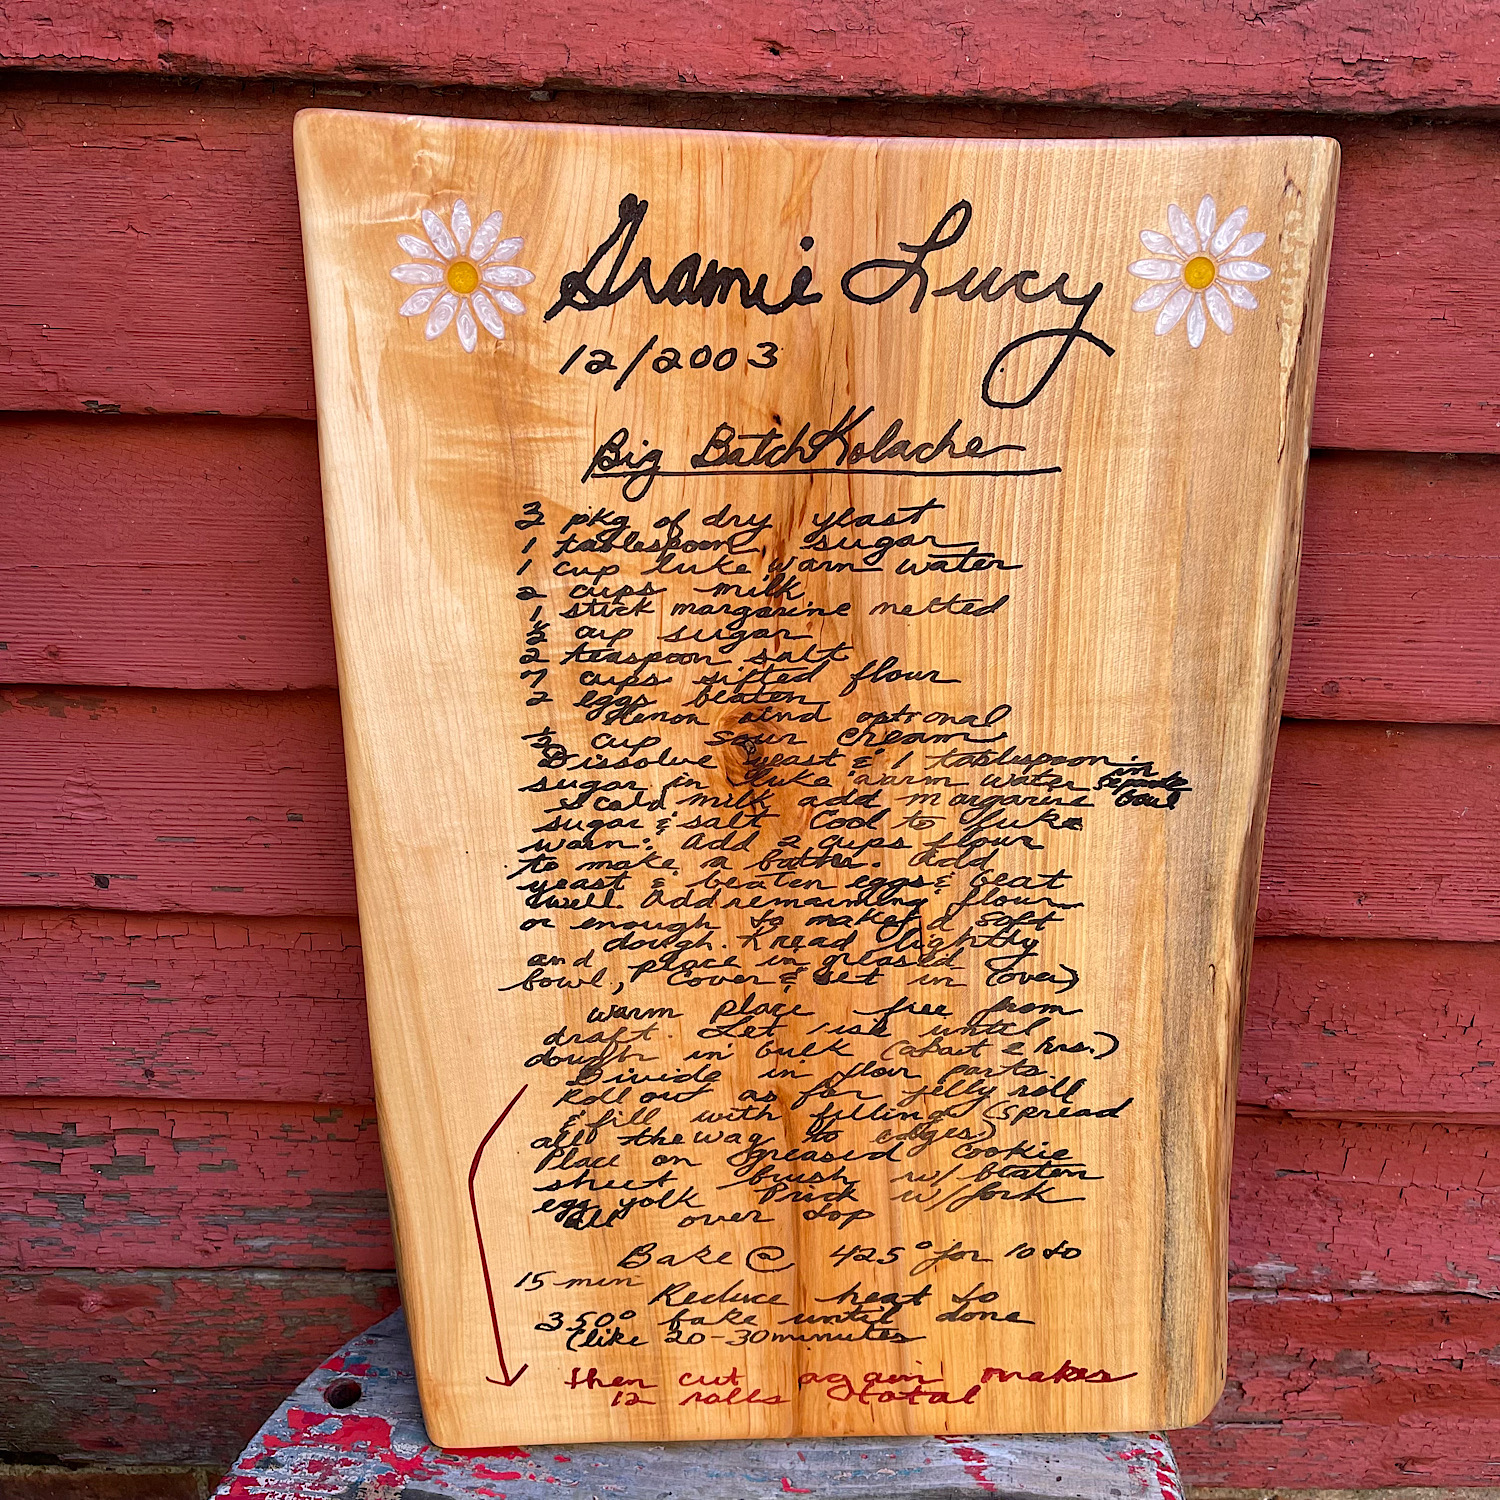 Gramie Lucy
12/2003
Big Batch Kolache
pkg of dry yeast
1 tablespoon sugar
1 cup luke warm water
2 cups milk
1 stick margarine melted
½ cup sugar
2 teaspoon salt
7 cups sifted flour
2 eggs beaten
lemon rind optional
½ cup sour cream
Dissolve yeast & 1 tablespoon
sugar in luke warm water in seperate bowl
scald milk add margarine
sugar & salt Cool to luke
warm. Add 2 cups flour
to make a batter. Add
yeast & beaten eggs & beat
well. Add remaining flour
or enough to make a soft
dough. Knead lightly
and place in greased
bowl, Cover & set in (over)
warm place free from
draft. Let rise until
in bulk (about 2 hrs.)
Divide in four parts.
Roll out as for jelly roll
& fill with filling (spread
all the way to edges)
Place on greased cookie
sheet brush w/ beaten
egg yolk Prick w/ fork
all over top
Bake @ 425° for 10 to
15 min Reduce heat to
350° bake until done
(like 20-30 minutes
then cut again makes
12 rolls total